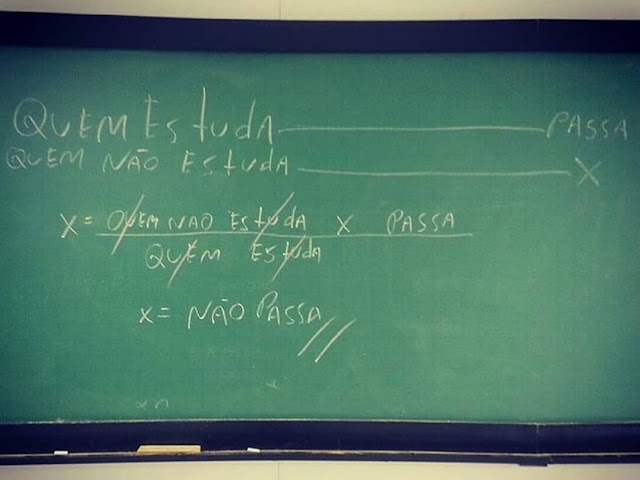 QUEM EStudA ———————— PASSA
QUEM NÃO EStudA ———————— X
X = QUEM NAO EStudA X PASSA
QUEM EStudA
X = NÃO PASSA //